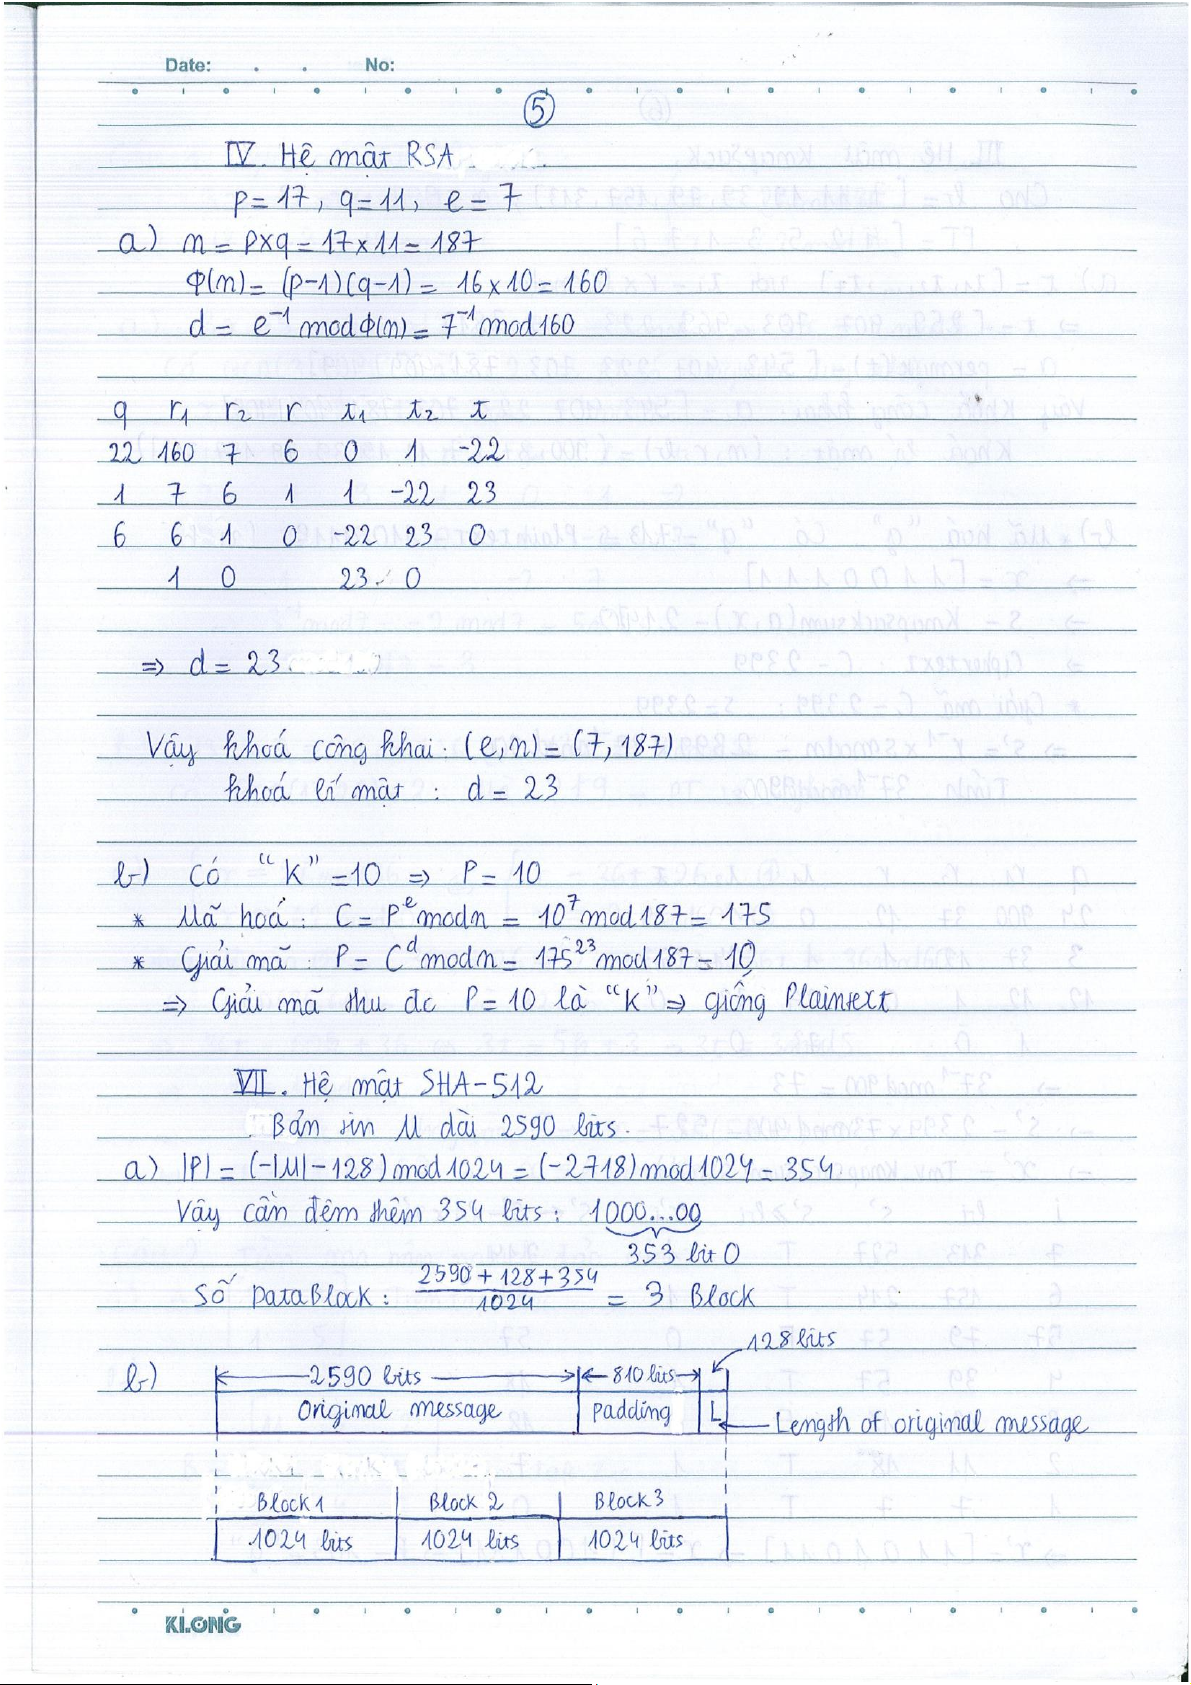 Date: . . No:
5
IV. Hệ mật RSA
p=17, q=11, e=7
a) n = p×q = 17×11 = 187
Φ(n) = (p-1)(q-1) = 16×10 = 160
d = e⁻¹ mod Φ(n) = 7⁻¹ mod 160
q r₁ r₂ r t₁ t₂ t
22 160 7 6 0 1 -22
1 7 6 1 1 -22 23
6 6 1 0 -22 23 0
1 0 23 0
⇒ d = 23
Vậy khoá công khai: (e,n) = (7, 187)
khoá bí mật : d = 23
b) Có "K" = 10 ⇒ P = 10
* Mã hoá : C = Pᵉ mod n = 10⁷ mod 187 = 175
* Giải mã : P = Cᵈ mod n = 175²³ mod 187 = 10
⇒ Giải mã thu đc P = 10 là "K" ⇒ giống Plaintext
VII. Hệ mật SHA-512
Bản tin M dài 2590 bits.
a) |P| = (-|M| - 128) mod 1024 = (-2718) mod 1024 = 354
Vậy cần đệm thêm 354 bits : 1000...00
353 bit 0
Số DataBlock : (2590 + 128 + 354)/1024 = 3 Block
128 bits
b) 2590 bits 810 bits
Original message Padding L Length of original message
Block 1 Block 2 Block 3
1024 bits 1024 bits 1024 bits
KLONG